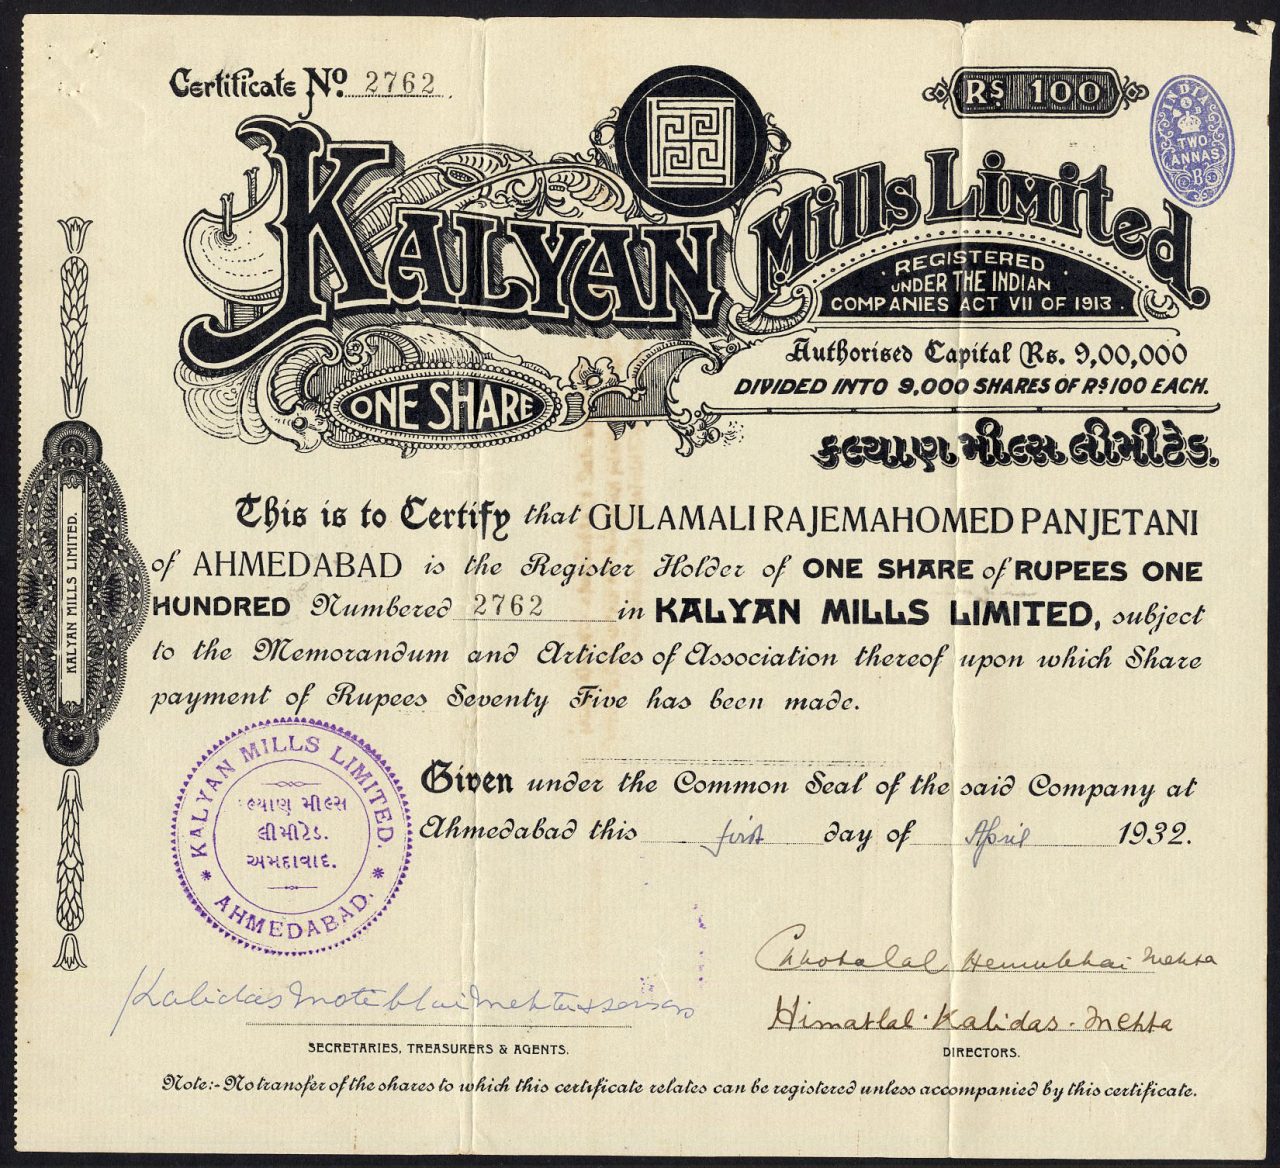 Certificate No. 2762
Rs 100
INDIA
TWO
ANNAS
KALYAN Mills Limited.
REGISTERED
UNDER THE INDIAN
COMPANIES ACT VII OF 1913.
Authorised Capital Rs. 9,00,000
DIVIDED INTO 9,000 SHARES OF RS 100 EACH.
ONE SHARE
કલ્યાણ મીલ્સ લીમીટેડ.
KALYAN MILLS LIMITED.
This is to Certify that GULAMALI RAJEMAHOMED PANJETANI
of AHMEDABAD is the Register Holder of ONE SHARE of RUPEES ONE
HUNDRED Numbered 2762 in KALYAN MILLS LIMITED, subject
to the Memorandum and Articles of Association thereof upon which Share
payment of Rupees Seventy Five has been made.
KALYAN MILLS LIMITED.
લ્યાણ મીલ્સ
લીમીટેડ.
અમદાવાદ.
* AHMEDABAD. *
Given under the Common Seal of the said Company at
Ahmedabad this first day of April 1932.
Chhotalal Hemubhai Mehta
Kalidas Motibhai Mehta & sons
Himatlal. Kalidas. Mehta
SECRETARIES, TREASURERS & AGENTS.
DIRECTORS.
Note:- No transfer of the shares to which this certificate relates can be registered unless accompanied by this certificate.